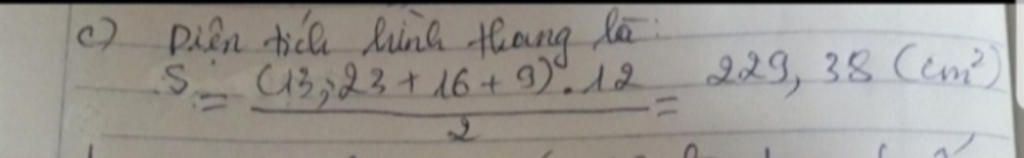 c) Diện tích hình thang là:
S = (13,23 + 16 + 9) . 12 / 2 = 229,38 (cm²)